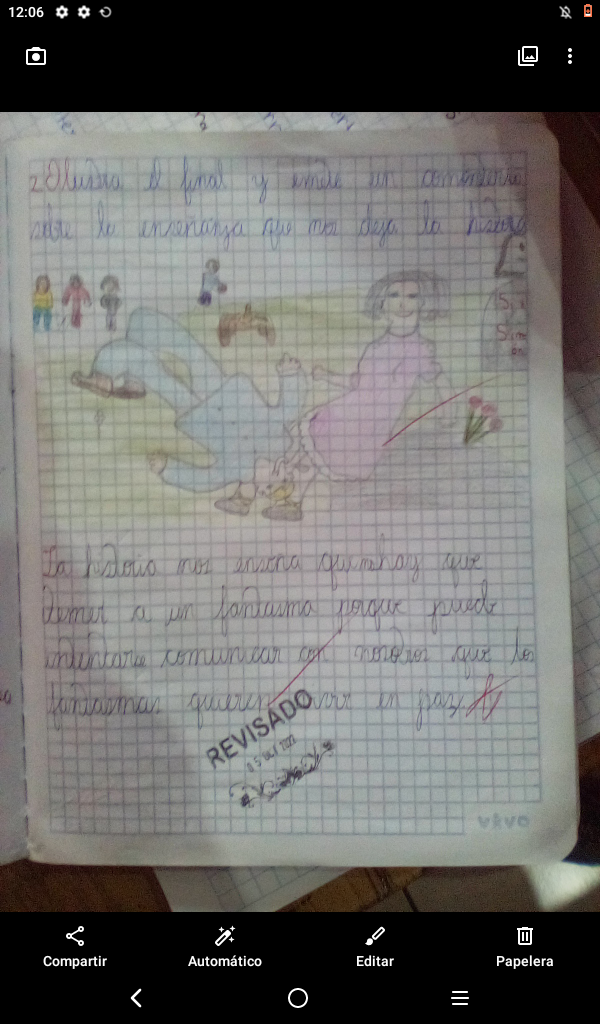 12:06
2. Ilustra el final y emite un comentario
sobre la enseñanza que nos deja la historia
Sir
Sim
on
La historia nos enseña que no hay que
temer a un fantasma porque puede
intentarse comunicar con nosotros que los
fantasmas quieren vivir en paz
REVISADO
vivo
Compartir
Automático
Editar
Papelera